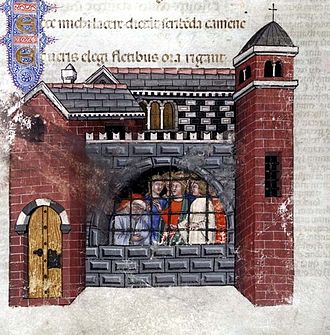 ce michi lacere dictāt scribēda camene
veris elegi fletibus ora rigant